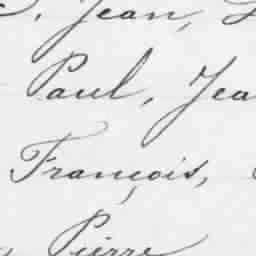 Jean,
Paul, Jea
François,
Pierre